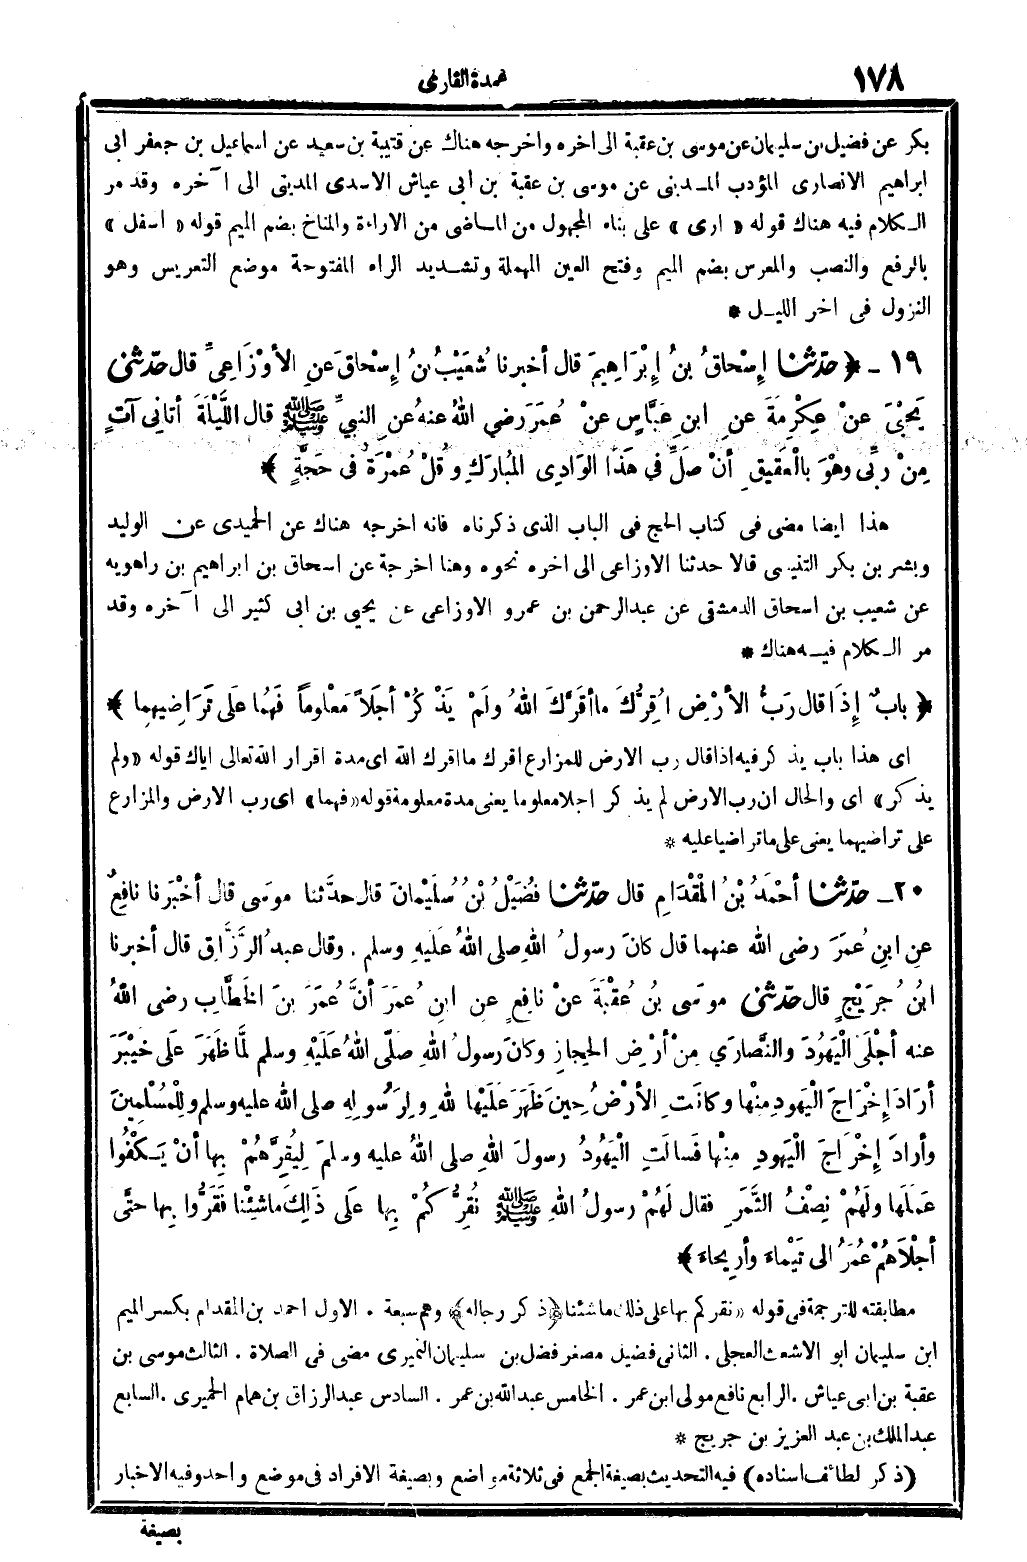 ١٧٨
عمدة القارئ
بكر عن فضيل بن سليمان عن موسى بن عقبة الى اخره واخرجه هناك عن قتيبة بن سعيد عن اسماعيل بن جعفر ابى
ابراهيم الانصارى المؤدب المدينى عن موسى بن عقبة بن ابى عياش الاسدى المدينى الى آخره وقد مر
الكلام فيه هناك قوله « ارى » على بناء المجهول من الماضى من الاراءة والمناخ بضم الميم قوله « اسفل »
بالرفع والنصب والمعرس بضم الميم وفتح العين المهملة وتشديد الراء المفتوحة موضع التعريس وهو
النزول فى اخر الليل *
١٩ - ﴿ حدّثنا إسْحاقُ بنُ إبْرَاهِيمَ قال أخبرنا شُعَيْبُ بنُ إسْحاقَ عَنِ الأوْزَاعِيِّ قال حدّثنى
يَحْيَى عنْ عِكْرِمَةَ عنِ ابنِ عَبَّاسٍ عنْ عُمَرَ رضي اللهُ عنهُ عنِ النبيِّ ﷺ قال اللَّيْلَةَ أتانِي آتٍ
مِنْ ربِّى وهْوَ بالْعَقيقِ أنْ صَلِّ في هَذَا الوَادِى المُبارَكِ وقُلْ عُمْرَةٌ فى حَجَّةٍ ﴾
هذا ايضا مضى فى كتاب الحج فى الباب الذى ذكرناه فانه اخرجه هناك عن الحميدى عن الوليد
وبشر بن بكر التنيسى قالا حدثنا الاوزاعى الى اخره نحوه وهنا اخرجة عن اسحاق بن ابراهيم بن راهويه
عن شعيب بن اسحاق الدمشقى عن عبدالرحمن بن عمرو الاوزاعى عن يحيى بن ابى كثير الى آخره وقد
مر الكلام فيه هناك *
﴿ بابٌ إذَا قال رَبُّ الأرْضِ اُقِرُّكَ ما أقَرَّكَ اللهُ ولَمْ يَذْكُرْ أجَلاً مَعْلوماً فَهُما عَلى تَرَاضِيهِما ﴾
اى هذا باب يذكر فيه اذا قال رب الارض للمزارع اقرك ما اقرك الله اى مدة اقرار الله تعالى اياك قوله «ولم
يذكر» اى والحال ان رب الارض لم يذكر اجلا معلوما يعنى مدة معلومة قوله «فهما» اى رب الارض والمزارع
على تراضيهما يعنى على ما تراضيا عليه *
٢٠ - حدّثنا أحْمَدُ بْنُ المِقْدَامِ قال حدّثنا فُضَيْلُ بْنُ سُلَيْمانَ قال حدَّثنا موسَى قال أخْبَرنا نافِعٌ
عنِ ابنِ عُمَرَ رضى الله عنهما قال كانَ رسولُ اللهِ صلى اللهُ عَلَيهِ وسلم . وقال عبدُ الرَّزَّاقِ قال أخبرنا
ابنُ جُرَيْجٍ قال حدّثنى موسَى بنُ عُقْبَةَ عنْ نافِعٍ عنِ ابنِ عُمَرَ أنَّ عُمَرَ بنَ الخَطَّابِ رضى اللهُ
عنه أجْلَى اليَهُودَ والنَّصَارَي مِنْ أرْضِ الحِجازِ وكانَ رسولُ اللهِ صلّى اللهُ عَلَيْهِ وسلم لمَّا ظَهَرَ عَلَى خَيْبَرَ
أرَادَ إخْرَاجَ اليَهُودِ مِنْها وكانَتِ الأرْضُ حِينَ ظَهَرَ عَلَيْها للهِ ولِرَسُولِهِ صلى الله عليه وسلم ولِلْمُسْلِمِينَ
وأرادَ إخْرَاجَ الْيَهُودِ مِنْها فَسألَتِ الْيَهُودُ رسولَ اللهِ صلى اللهُ عليه وسلمَ لِيُقِرَّهُمْ بِها أنْ يَكْفُوا
عَمَلَها ولَهُمْ نِصْفُ الثَّمَرِ فقال لَهُمْ رسولُ اللهِ ﷺ نُقِرُّكُمْ بِها عَلَى ذَلِكَ ماشِئْنا فَقَرُّوا بِها حتَّى
أجْلاَهُمْ عُمَرُ الى تَيْماءَ وأرِيحاءَ ﴾
مطابقته للترجمة فى قوله «نقركم بها على ذلك ماشئنا ﴿ذكر رجاله﴾ وهم سبعة . الاول احمد بن المقدام بكسر الميم
ابن سليمان ابو الاشعث العجلى . الثانى فضيل مصغر فضل بن سليمان النميرى مضى فى الصلاة . الثالث موسى بن
عقبة بن ابى عياش . الرابع نافع مولى ابن عمر . الخامس عبدالله بن عمر . السادس عبدالرزاق بن همام الحميرى . السابع
عبدالملك بن عبد العزيز بن جريج *
(ذكر لطائف اسناده) فيه التحديث بصيغة الجمع فى ثلاثة مواضع وبصيغة الافراد فى موضع واحد وفيه الاخبار
بصيغة